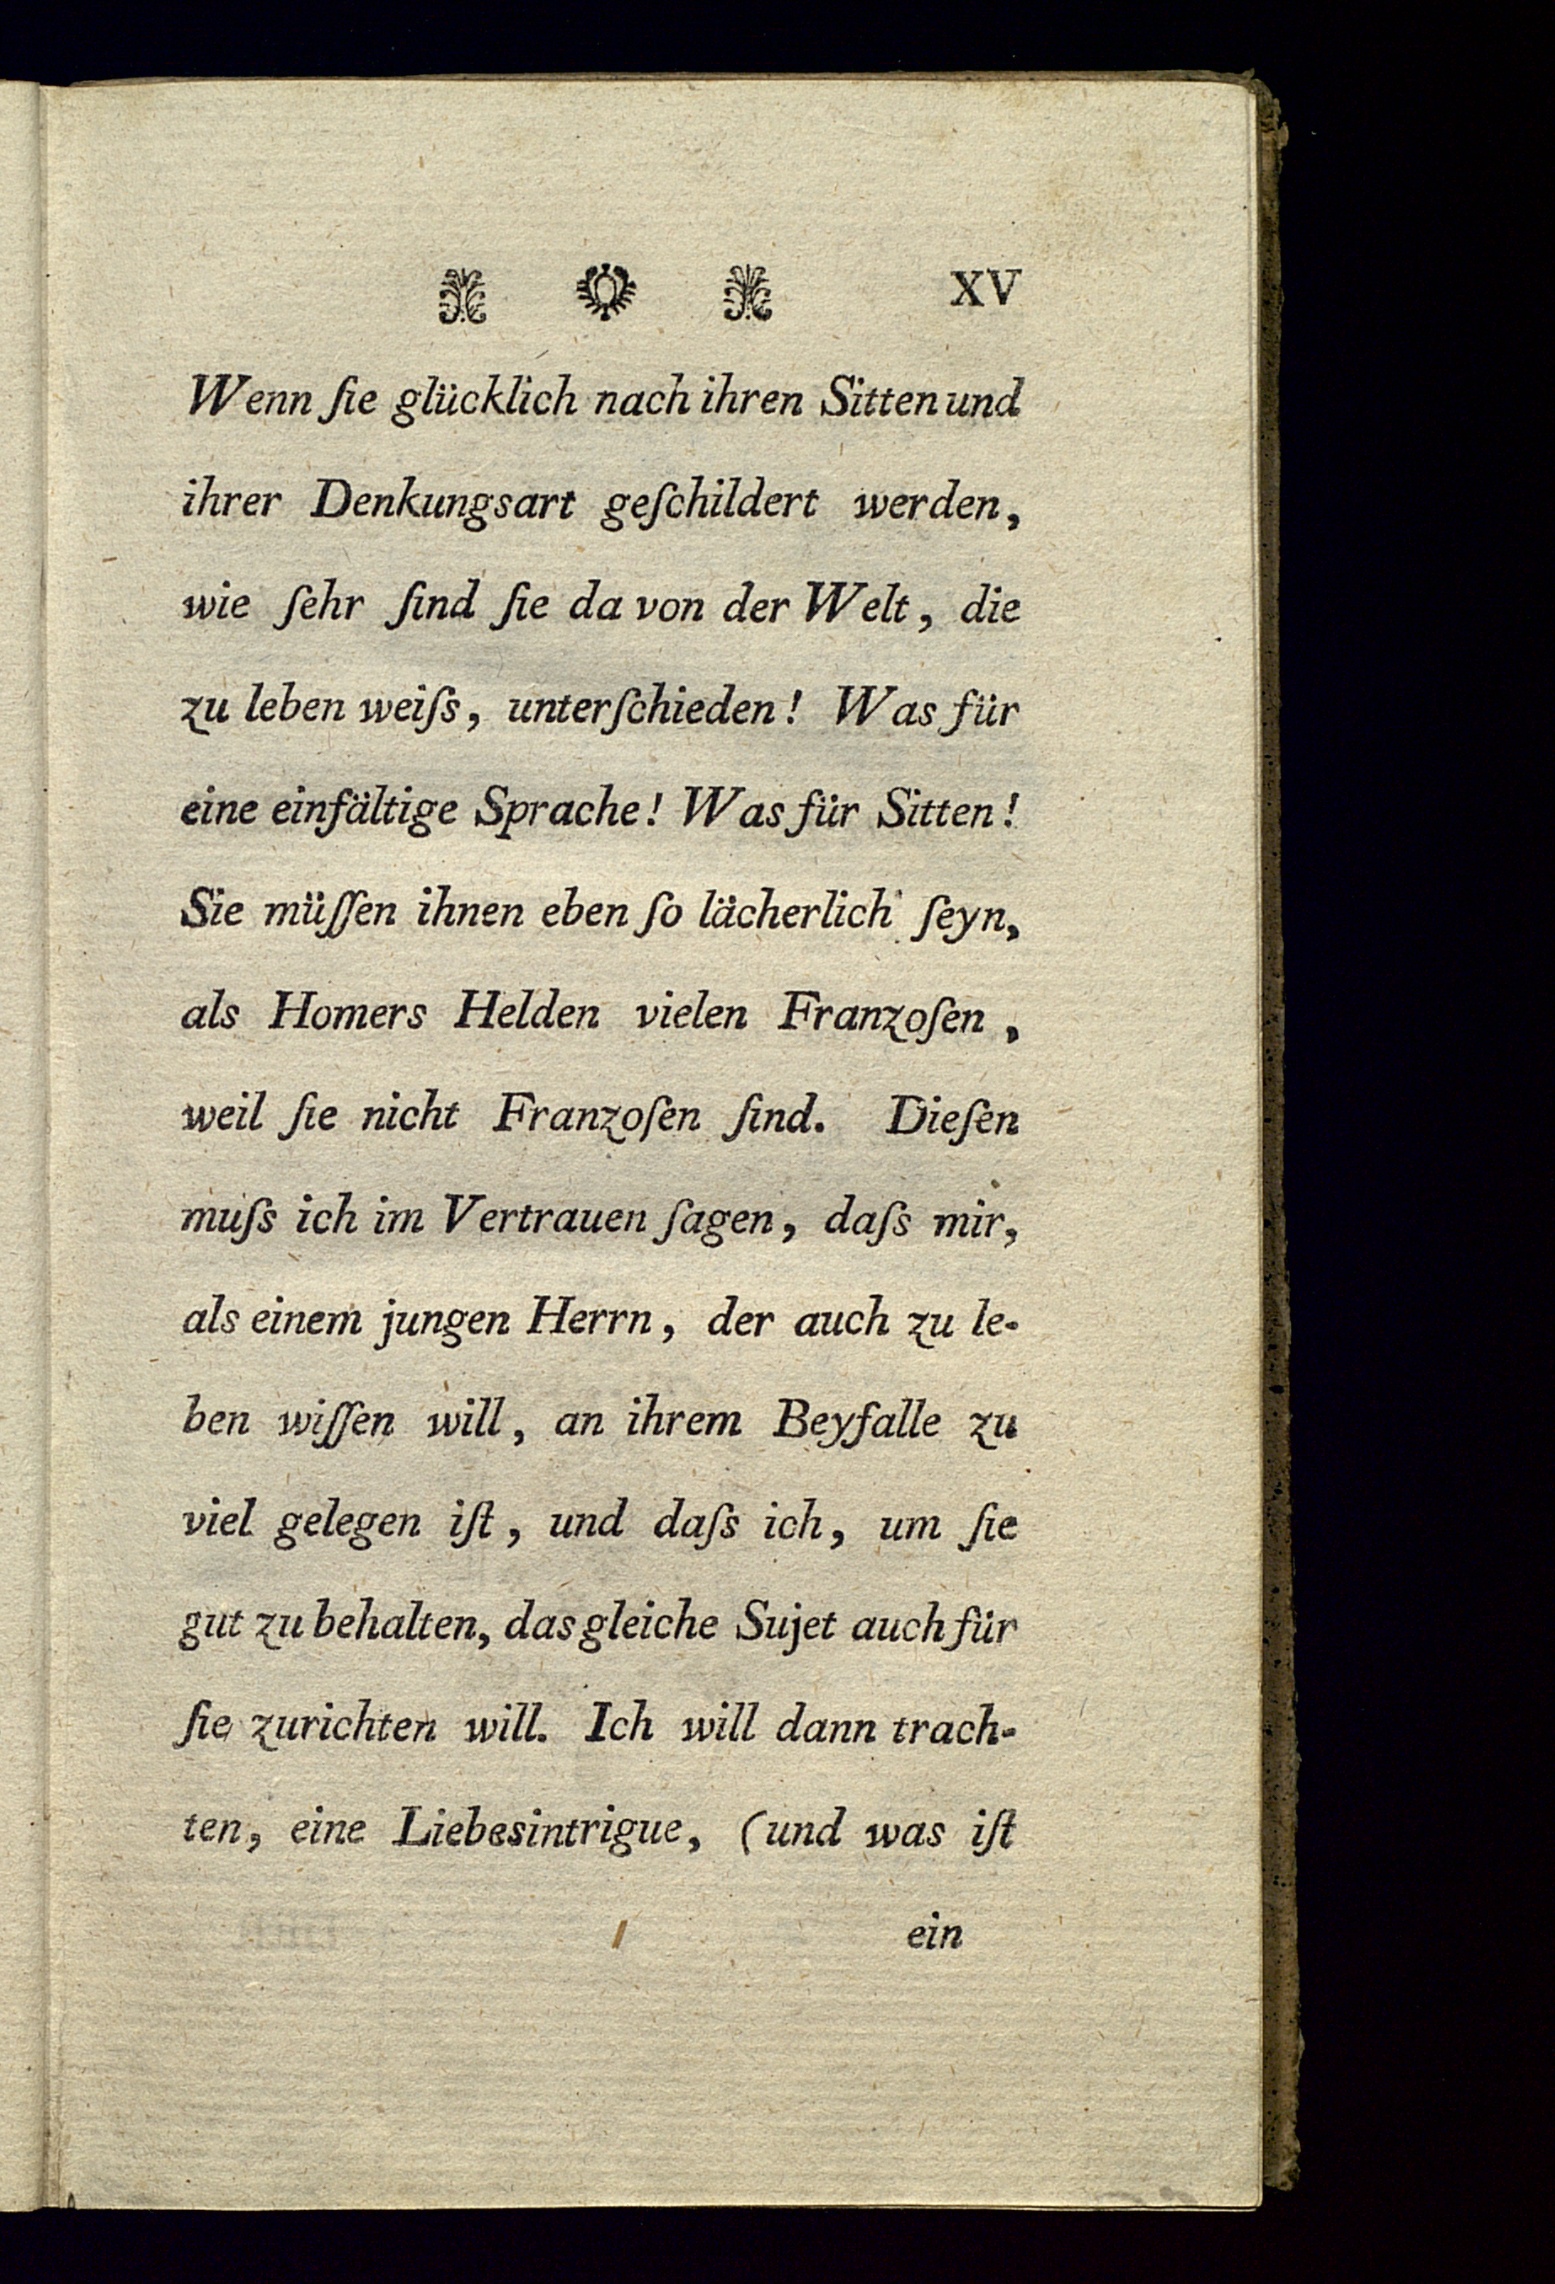 XV
Wenn ſie glücklich nach ihren Sitten und
ihrer Denkungsart geſchildert werden,
wie ſehr ſind ſie da von der Welt, die
zu leben weiſs, unterſchieden! Was für
eine einfältige Sprache! Was für Sitten!
Sie müſſen ihnen eben ſo lächerlich ſeyn,
als Homers Helden vielen Franzoſen,
weil ſie nicht Franzoſen ſind. Dieſen
muſs ich im Vertrauen ſagen, daſs mir,
als einem jungen Herrn, der auch zu le-
ben wiſſen will, an ihrem Beyfalle zu
viel gelegen iſt, und daſs ich, um ſie
gut zu behalten, das gleiche Sujet auch für
ſie zurichten will. Ich will dann trach-
ten, eine Liebesintrigue, (und was iſt
ein